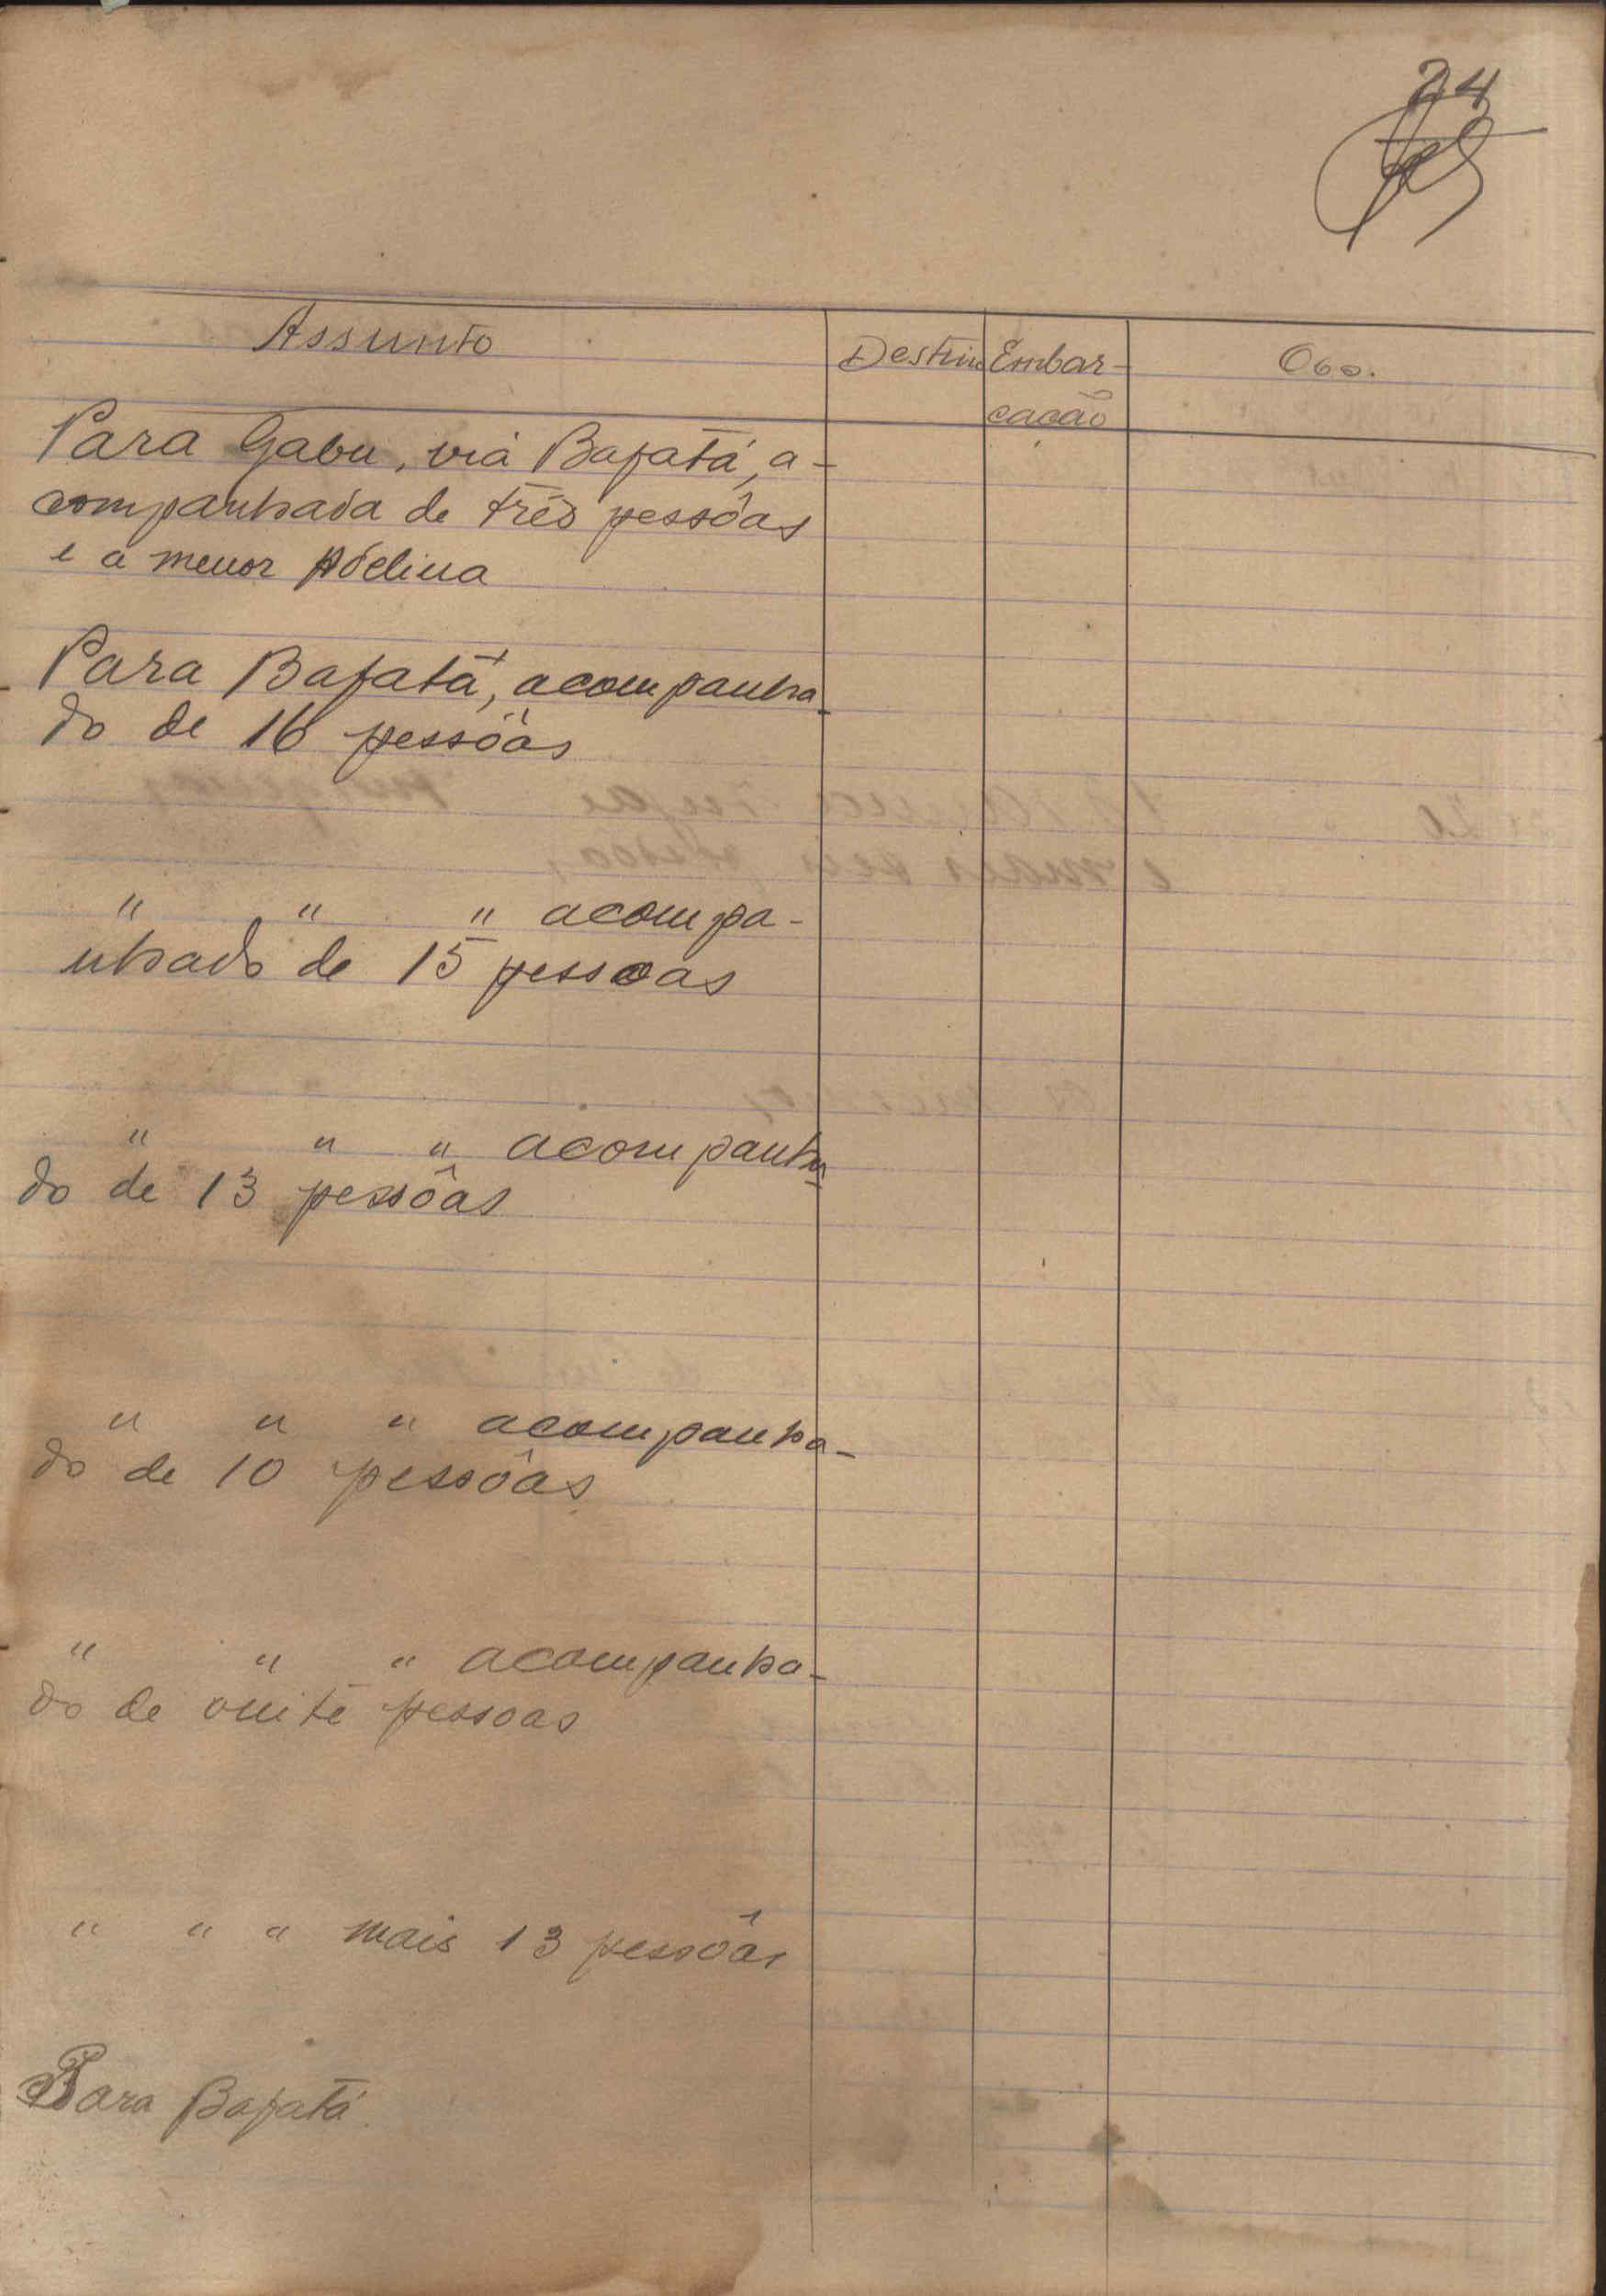 24
Assunto Destino Embar-
cação Obs.
Para Gabu, viá Bafatá, a-
companhada de três pessôas
e a menor Adelina
Para Bafatá, acompanha-
do de 16 pessôas
" " " acompa-
nhado de 15 pessoas
" " " acompanha-
do de 13 pessôas
" " " acompanha-
do de 10 pessôas
" " " acompanha-
do de pessoas
" " " mais 13 pessôas
Para Bafatá